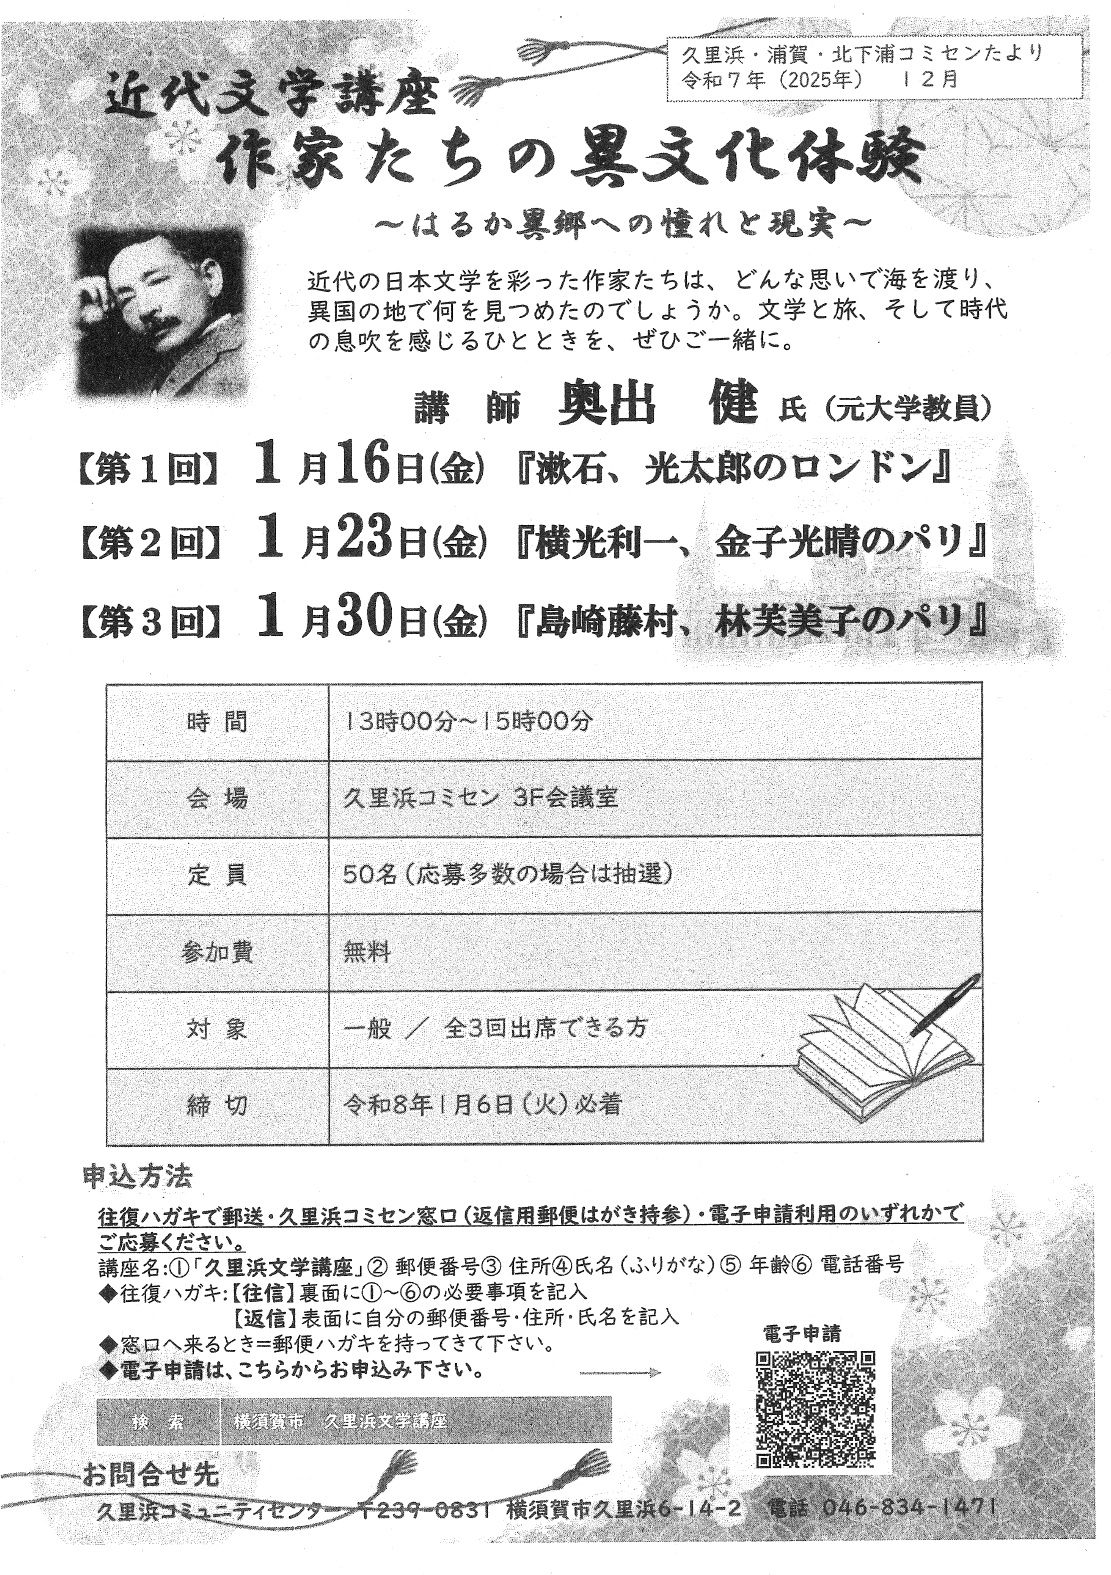 久里浜・浦賀・北下浦コミセンたより
令和７年（2025年）　１２月
近代文学講座
作家たちの異文化体験
～はるか異郷への憧れと現実～
近代の日本文学を彩った作家たちは、どんな思いで海を渡り、
異国の地で何を見つめたのでしょうか。文学と旅、そして時代
の息吹を感じるひとときを、ぜひご一緒に。
講　師　奥出　健 氏（元大学教員）
【第１回】 １月16日(金) 『漱石、光太郎のロンドン』
【第２回】 １月23日(金) 『横光利一、金子光晴のパリ』
【第３回】 １月30日(金) 『島崎藤村、林芙美子のパリ』
時 間　13時00分～15時00分
会 場　久里浜コミセン 3F会議室
定 員　50名（応募多数の場合は抽選）
参加費　無料
対 象　一般 ／ 全3回出席できる方
締 切　令和8年1月6日（火）必着
申込方法
往復ハガキで郵送・久里浜コミセン窓口（返信用郵便はがき持参）・電子申請利用のいずれかで
ご応募ください。
講座名:①「久里浜文学講座」② 郵便番号③ 住所④氏名（ふりがな）⑤ 年齢⑥ 電話番号
◆往復ハガキ:【往信】裏面に①～⑥の必要事項を記入
【返信】表面に自分の郵便番号・住所・氏名を記入
◆窓口へ来るとき＝郵便ハガキを持ってきて下さい。
◆電子申請は、こちらからお申込み下さい。
電子申請
検　索　横須賀市　久里浜文学講座
お問合せ先
久里浜コミュニティセンター　〒239-0831 横須賀市久里浜6-14-2　電話 046-834-1471